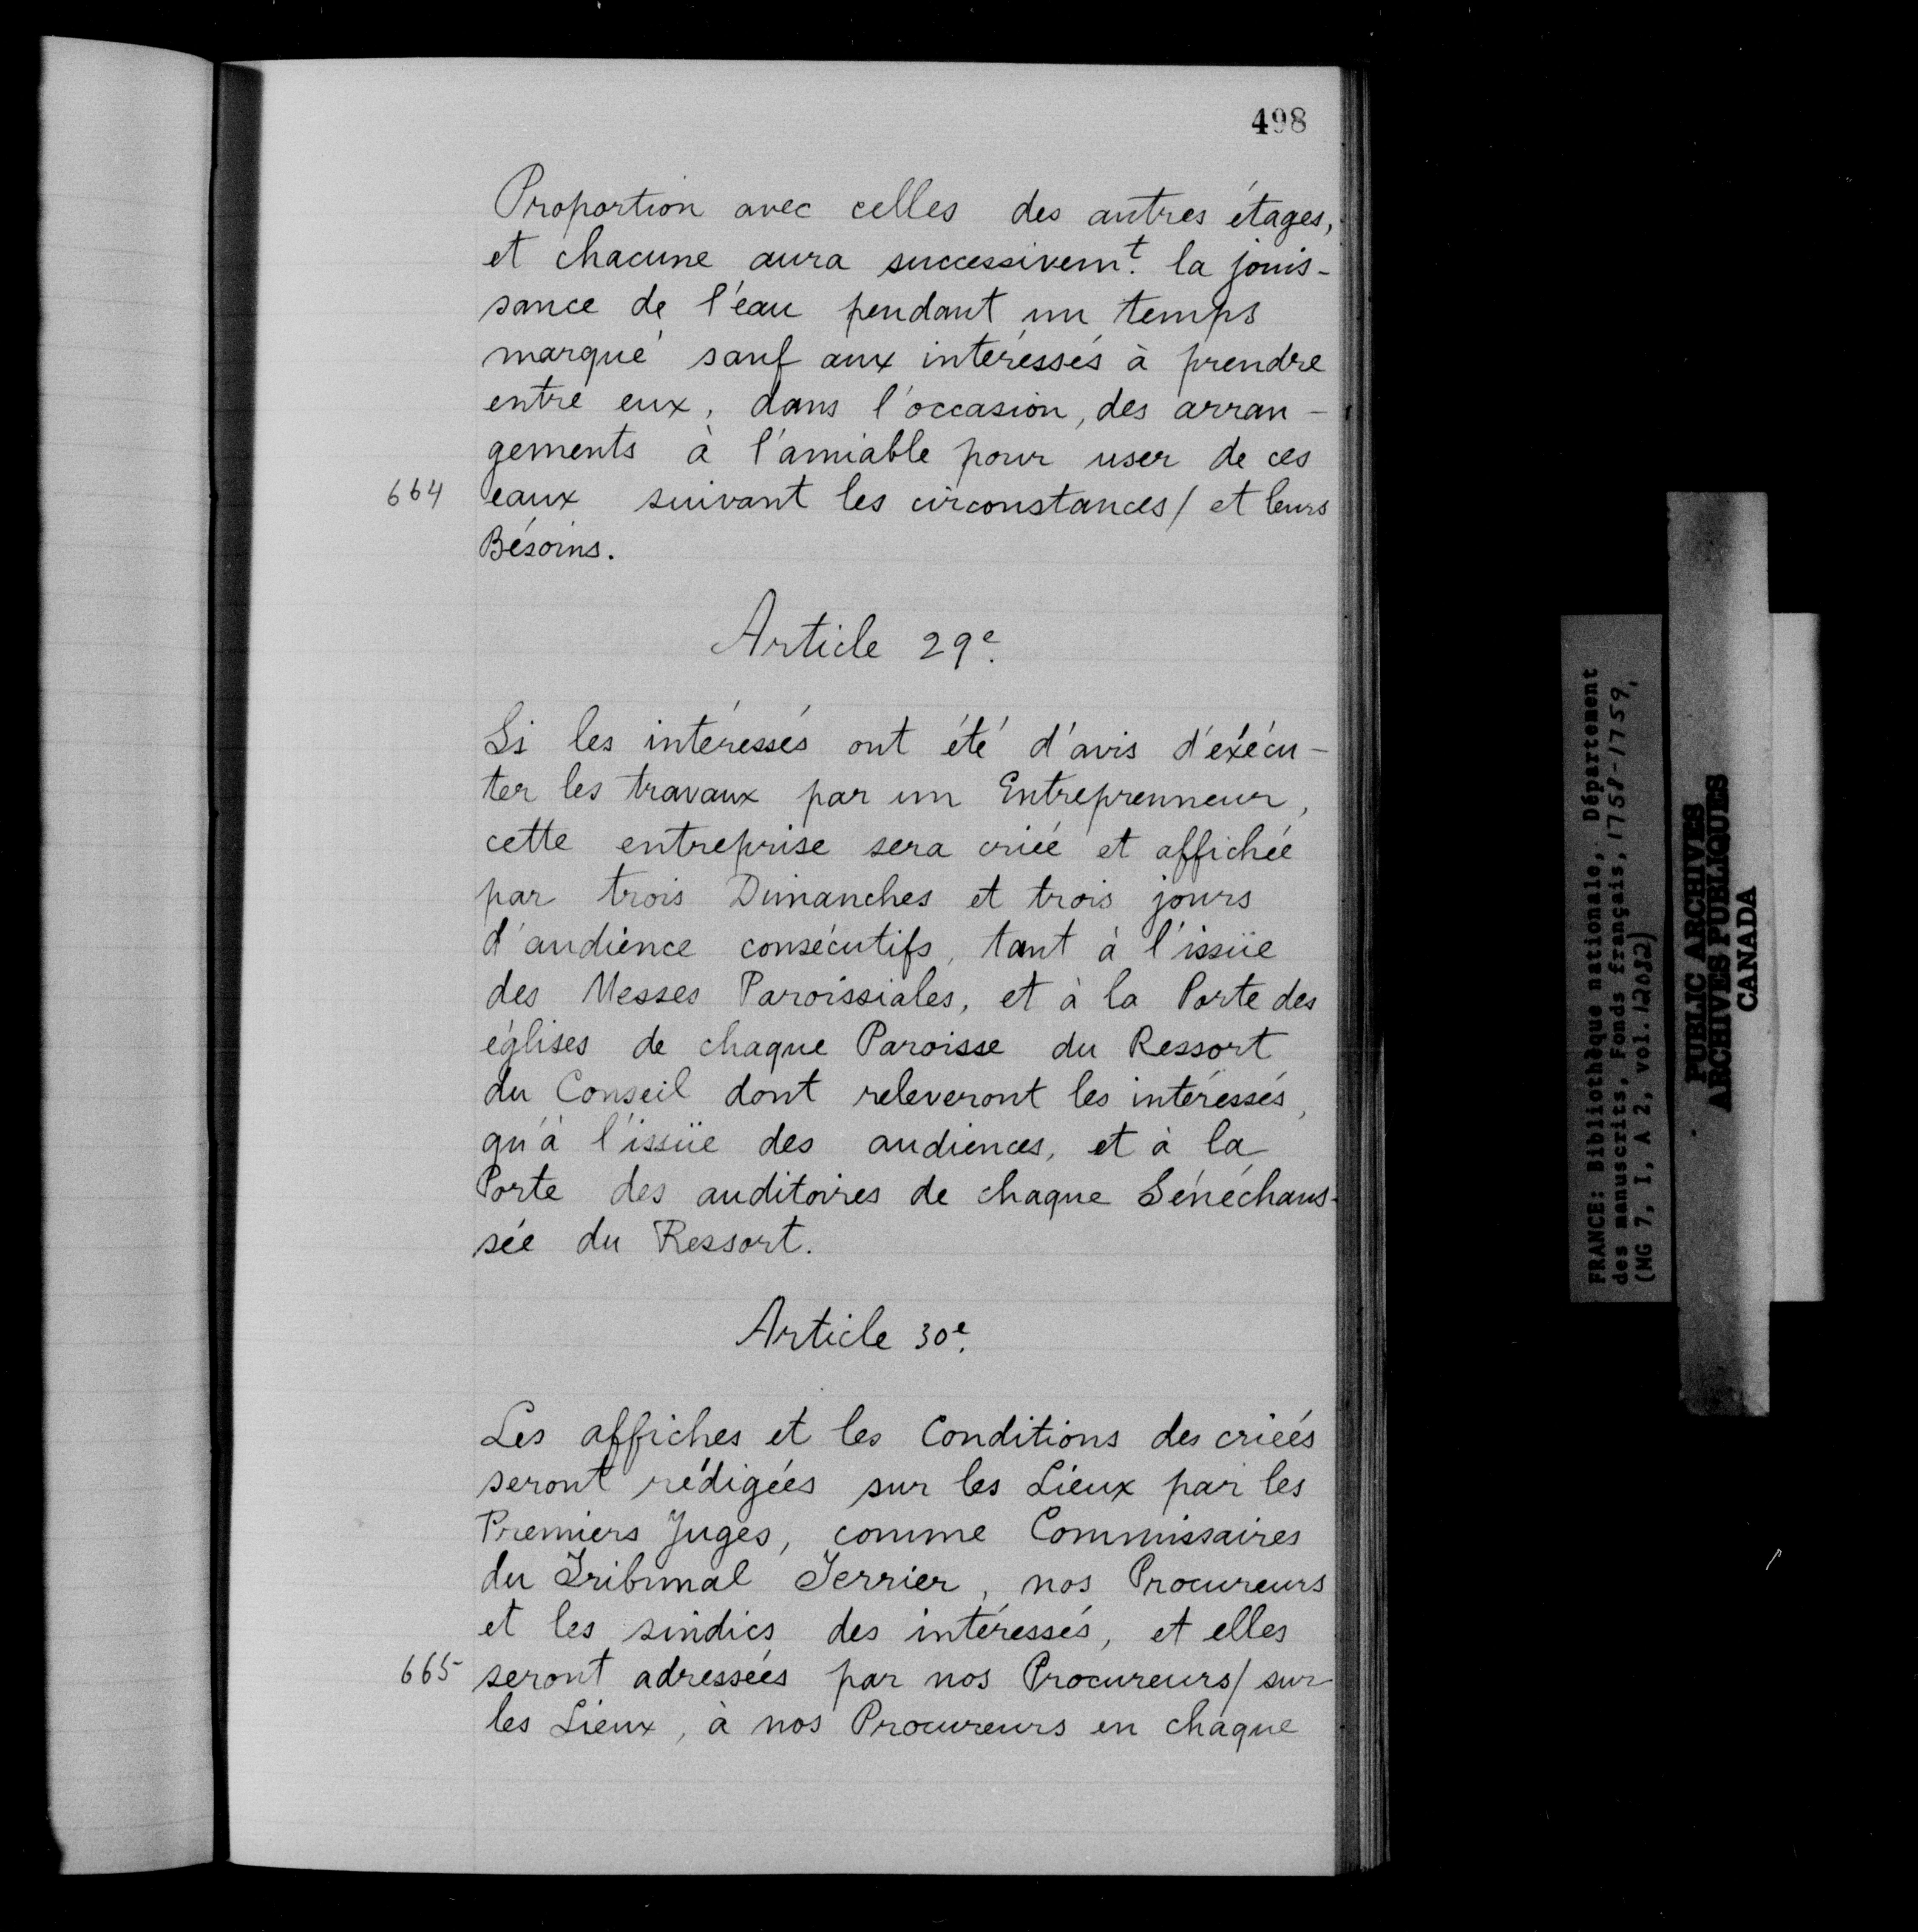 498
Proportion avec celles des autres étages,
et chacune aura successivemt. la jouis-
sance de l'eau pendant un temps
marqué sauf aux intéressés à prendre
entre eux, dans l'occasion, des arran-
gements à l'amiable pour user de ces
664 eaux suivant les circonstances / et leurs
Bésoins.
Article 29e.
Si les intéressés ont été d'avis d'éxécu-
ter les travaux par un Entreprenneur,
cette entreprise sera criée et affichée
par trois Dimanches et trois jours
d'audience consécutifs, tant à l'issüe
des Messes Paroissiales, et à la Porte des
églises de chaque Paroisse du Ressort
du Conseil dont releveront les intéressés,
qu'à l'issüe des audiences, et à la
Porte des auditoires de chaque Sénéchaus-
sée du Ressort.
Article 30e.
Les affiches et les Conditions des criées
seront rédigées sur les Lieux par les
Premiers Juges, comme Commissaires
du Tribunal Terrier, nos Procureurs
et les sindics des intéressés, et elles
665 seront adressées par nos Procureurs / sur
les Lieux, à nos Procureurs en chaque
FRANCE: Bibliothèque nationale, Département
des manuscrits, Fonds français, 1758-1759,
(MG 7, I, A 2, vol. 12082)
PUBLIC ARCHIVES
ARCHIVES PUBLIQUES
CANADA